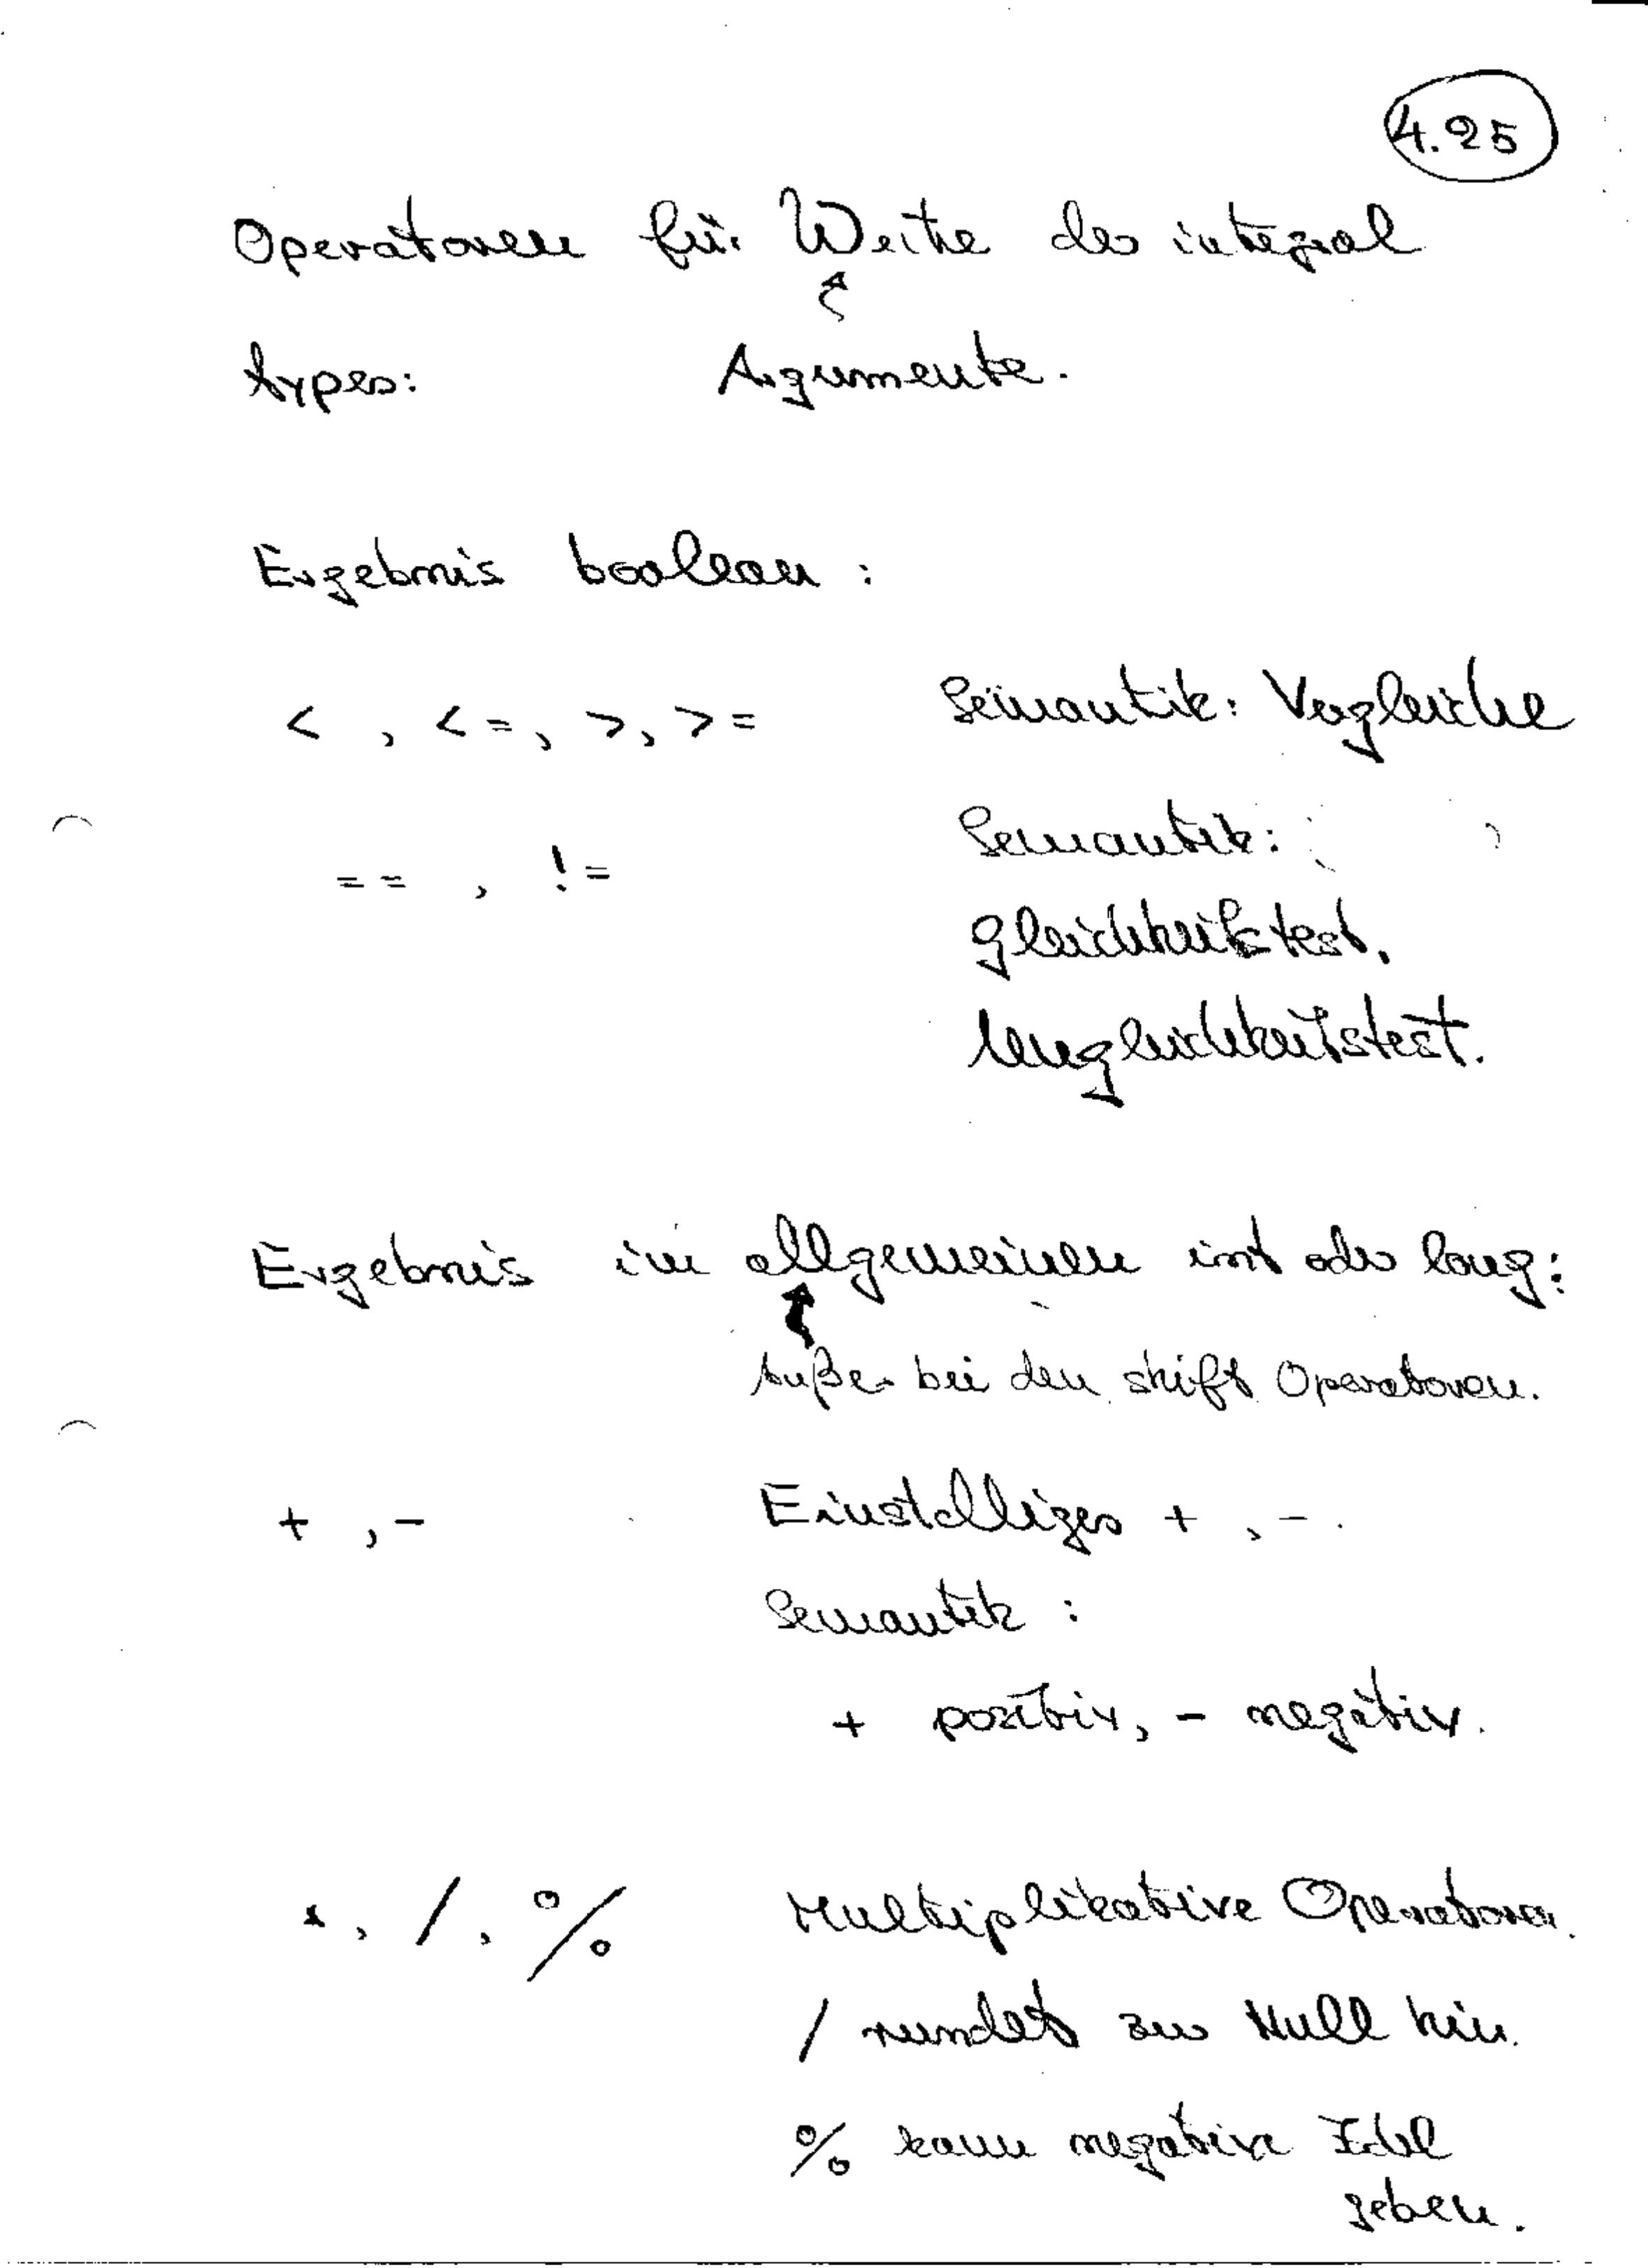 4.25
Operatoren für Werte der integral
types: Argumente.
Ergebnis boolean :
< , <=, >, >= Semantik: Vergleiche
== , != Semantik:
Gleichheitstest,
Ungleichheitstest.
Ergebnis im allgemeinen int oder long:
Außer bei den shift Operatoren.
+ , - Einstelliges + , - .
Semantik :
+ positiv, - negativ.
*, /, % Multiplikative Operatoren.
/ rundet zur Null hin.
% kann negative Zahl
geben.